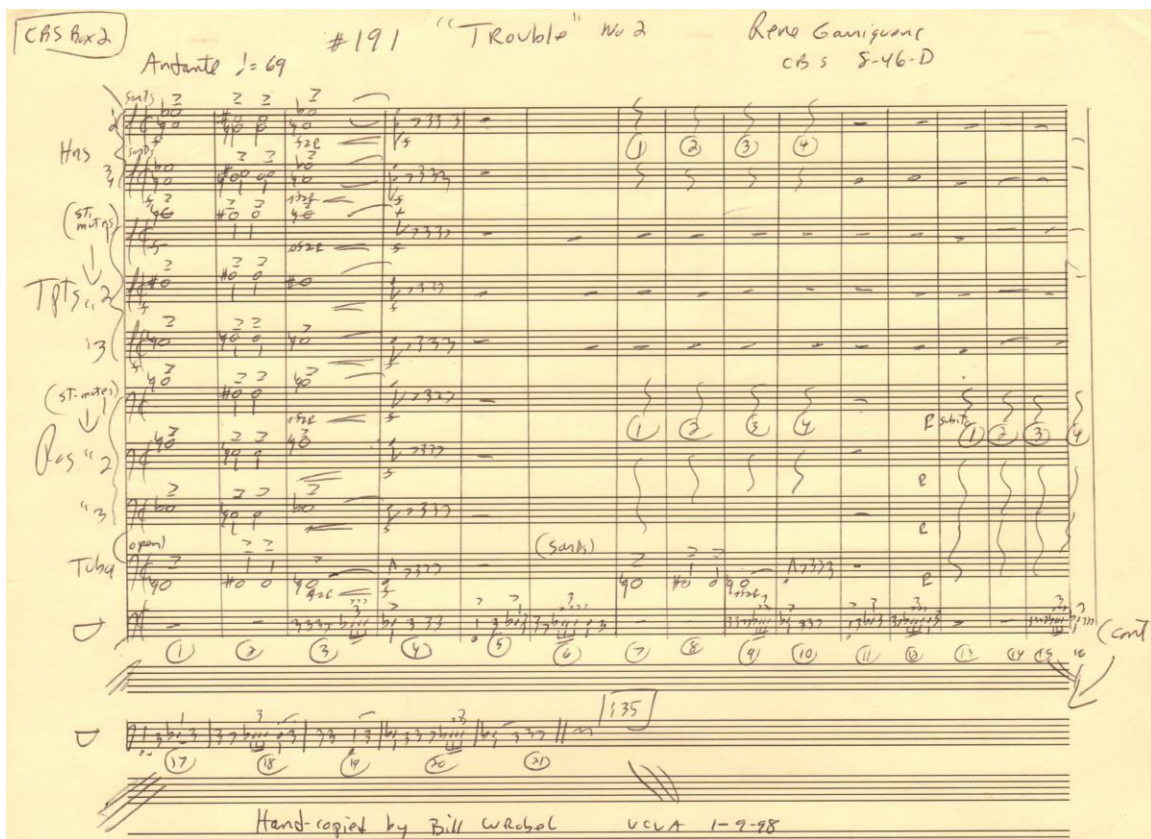 CBS Box 2
#191 "Trouble" No 2 Rene Garriguenc
Andante ♩= 69 CBS 8-46-D
Hns
(st. mutes)
Tpts 2
3
(st. mutes)
2
3
(open)
Tuba
(sords)
① ② ③ ④
① ② ③ ④
R subito ① ② ③ ④
① ② ③ ④ ⑤ ⑥ ⑦ ⑧ ⑨ ⑩ ⑪ ⑫ ⑬ ⑭ ⑮ 16
(cont
:35
⑰ ⑱ ⑲ ⑳ ㉑
Hand-copied by Bill Wrobel UCLA 1-9-98